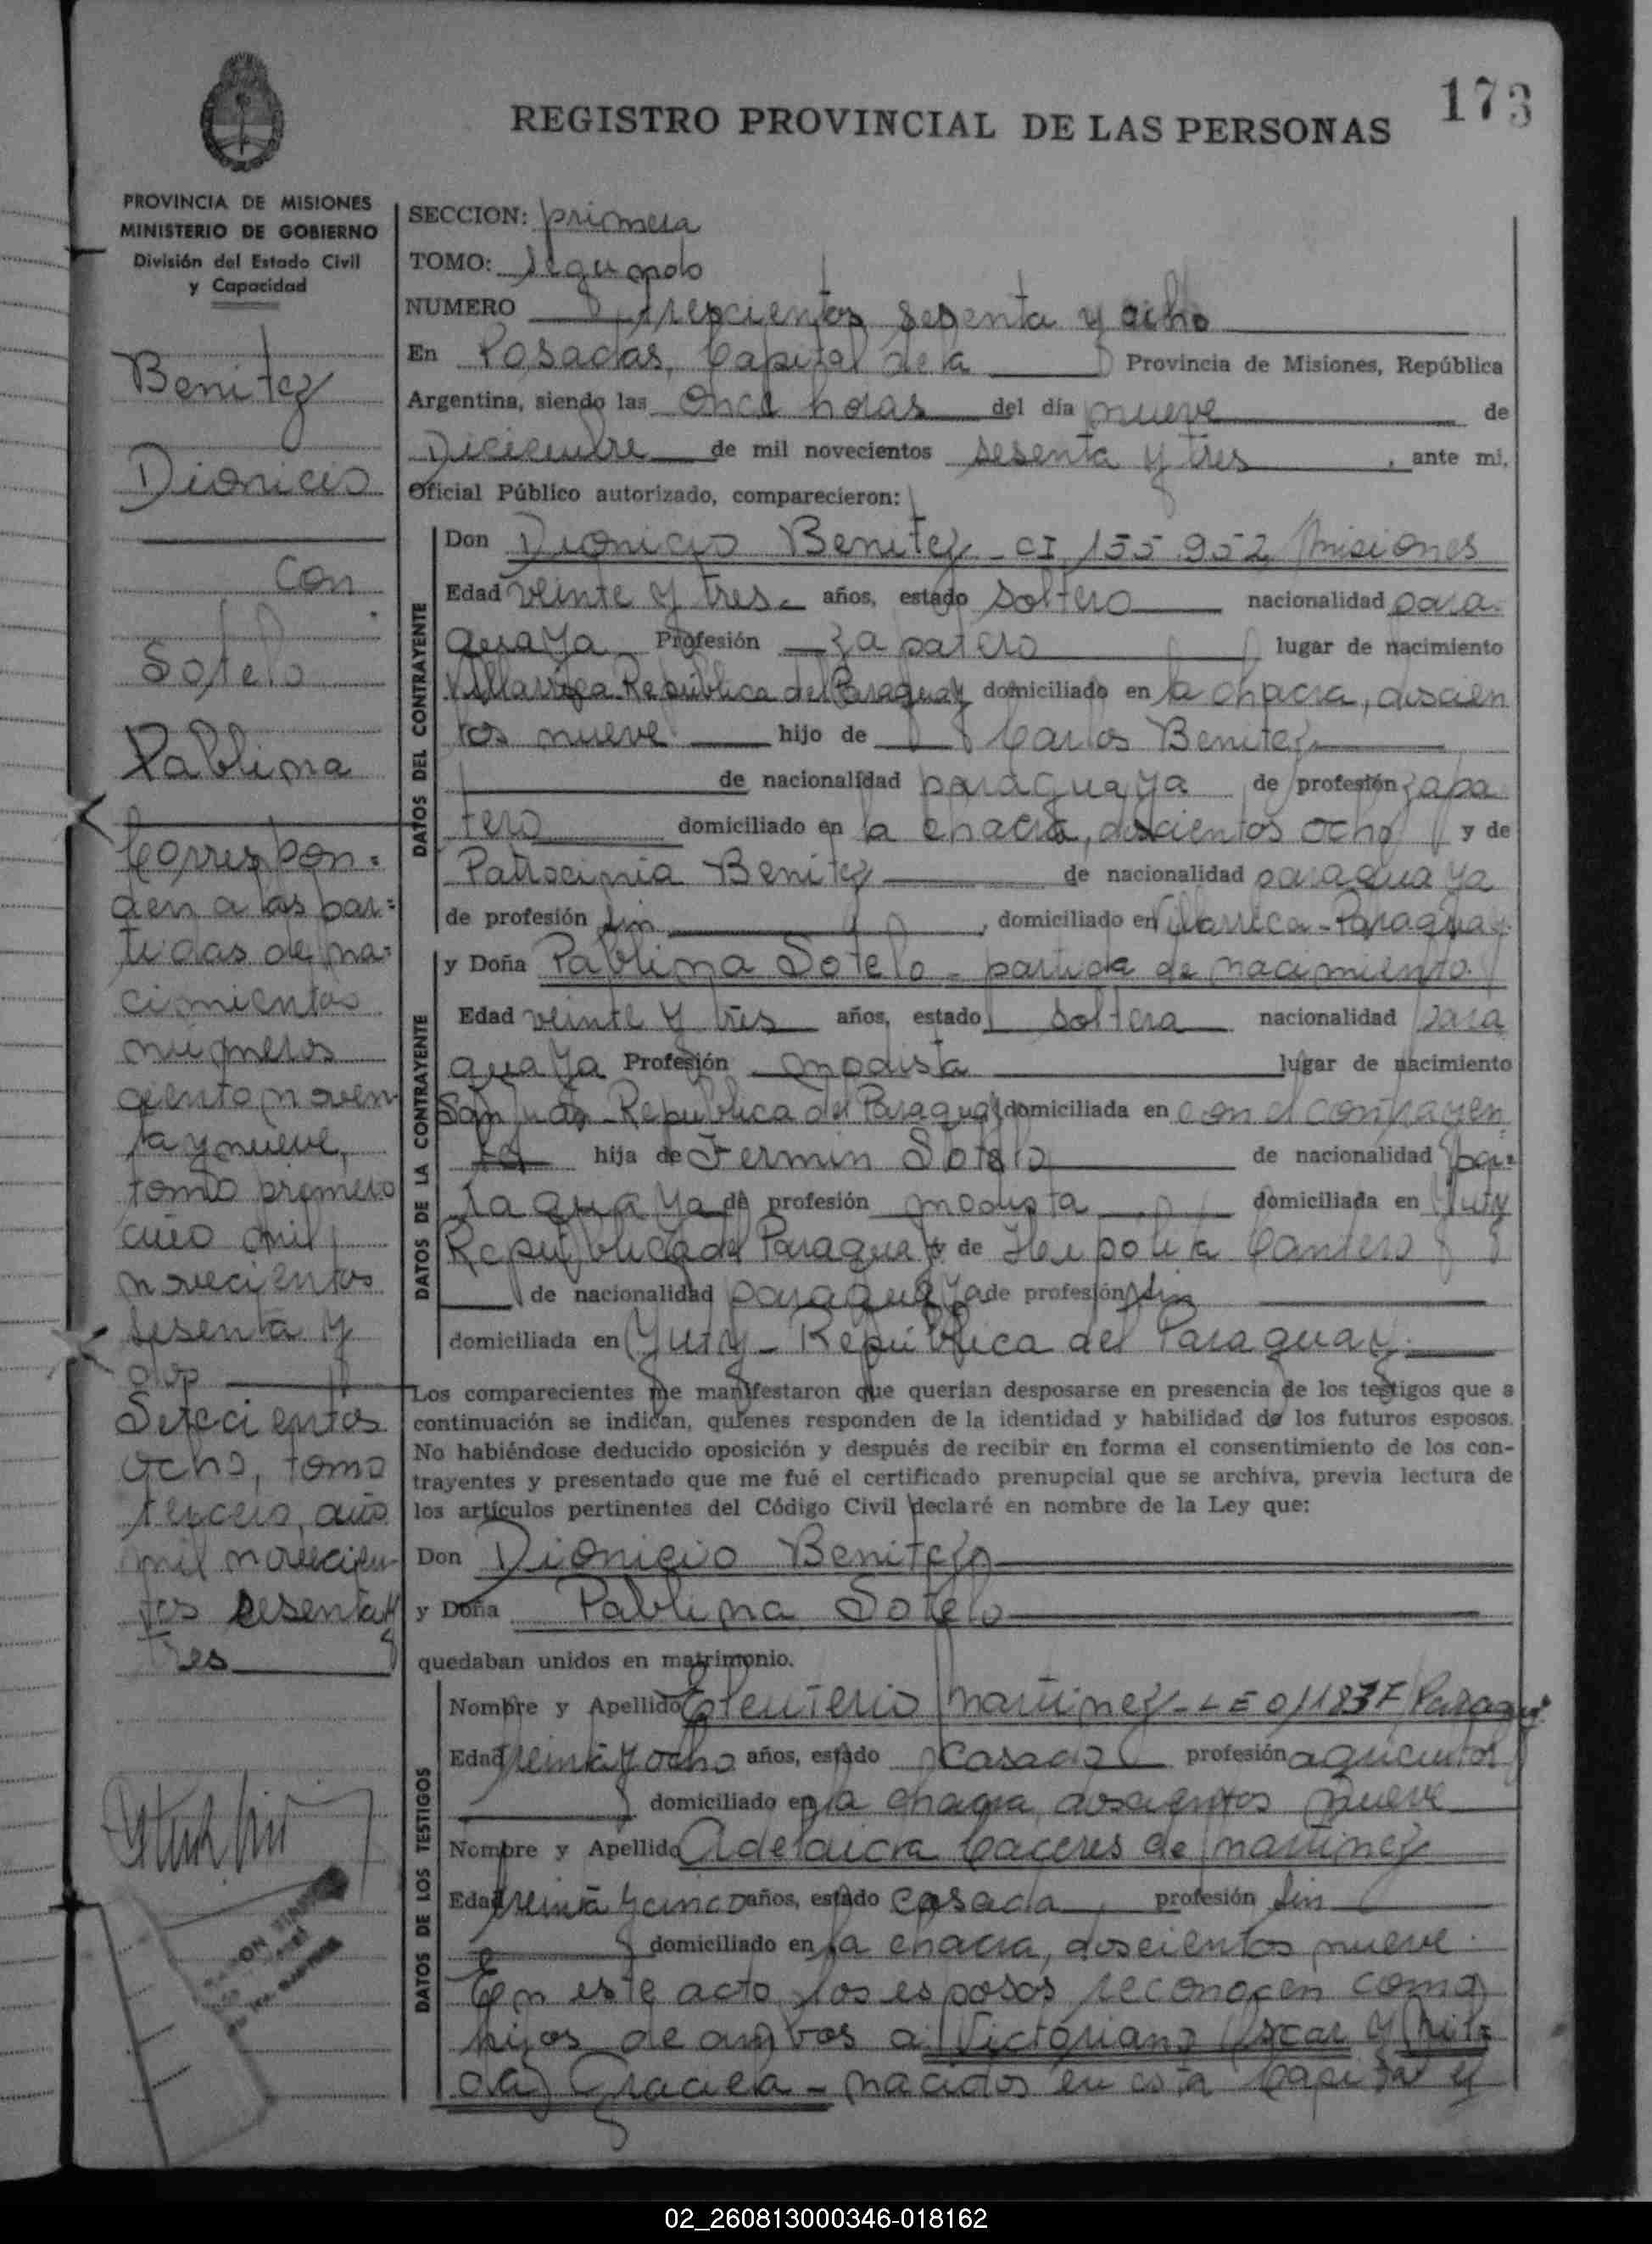 173
REGISTRO PROVINCIAL DE LAS PERSONAS
PROVINCIA DE MISIONES
MINISTERIO DE GOBIERNO
División del Estado Civil
y Capacidad
Benitez
Dionicio
Con
Sotelo
Pablina
Correspon=
den a las par=
tidas de na=
cimientos
números
ciento noven
ta y nueve,
tomo primero
año mil
novecientos
sesenta y
dos
Setecientos
ocho, tomo
tercero, año
mil novecien
tos sesenta y
tres
SECCION: primera
TOMO: segundo
NUMERO trescientos sesenta y ocho
En Posadas, Capital de la Provincia de Misiones, República
Argentina, siendo las once horas del día nueve de
Diciembre de mil novecientos sesenta y tres, ante mi,
Oficial Público autorizado, comparecieron:
DATOS DEL CONTRAYENTE
Don Dionicio Benitez - CI 155.952 Misiones
Edad veinte y tres - años, estado soltero nacionalidad para
guaya Profesión zapatero lugar de nacimiento
Villarrica República del Paraguay domiciliado en la chacra, doscien
tos nueve hijo de Carlos Benitez
de nacionalidad paraguaya de profesión zapa
tero domiciliado en la chacra, doscientos ocho y de
Patrocinia Benitez de nacionalidad paraguaya
de profesión sin, domiciliado en Villarrica - Paraguay
DATOS DE LA CONTRAYENTE
y Doña Pablina Sotelo - partida de nacimiento
Edad veinte y tres años, estado soltera nacionalidad para
guaya Profesión modista lugar de nacimiento
San Juan - República del Paraguay domiciliada en con el contrayen
te hija de Fermin Sotelo de nacionalidad pa
raguaya de profesión modista domiciliada en Yuty
República del Paraguay y de Hipolita Cantero
de nacionalidad paraguaya de profesión sin
domiciliada en Yuty - República del Paraguay
Los comparecientes me manifestaron que querían desposarse en presencia de los testigos que a
continuación se indican, quienes responden de la identidad y habilidad de los futuros esposos.
No habiéndose deducido oposición y después de recibir en forma el consentimiento de los con-
trayentes y presentado que me fué el certificado prenupcial que se archiva, previa lectura de
los artículos pertinentes del Código Civil declaré en nombre de la Ley que:
Don Dionicio Benitez
y Doña Pablina Sotelo
quedaban unidos en matrimonio.
DATOS DE LOS TESTIGOS
Nombre y Apellido Eleuterio Martinez - LE 011837 Paraguay
Edad treinta y ocho años, estado casado profesión agricultor
domiciliado en la chacra doscientos nueve
Nombre y Apellido Adelaida Caceres de Martinez
Edad treinta y cinco años, estado casada, profesión sin
domiciliado en la chacra, doscientos nueve.
En este acto los esposos reconocen como
hijos de ambos a Victoriano Oscar y
Graciela - nacidos en esta Capital y
02_260813000346-018162